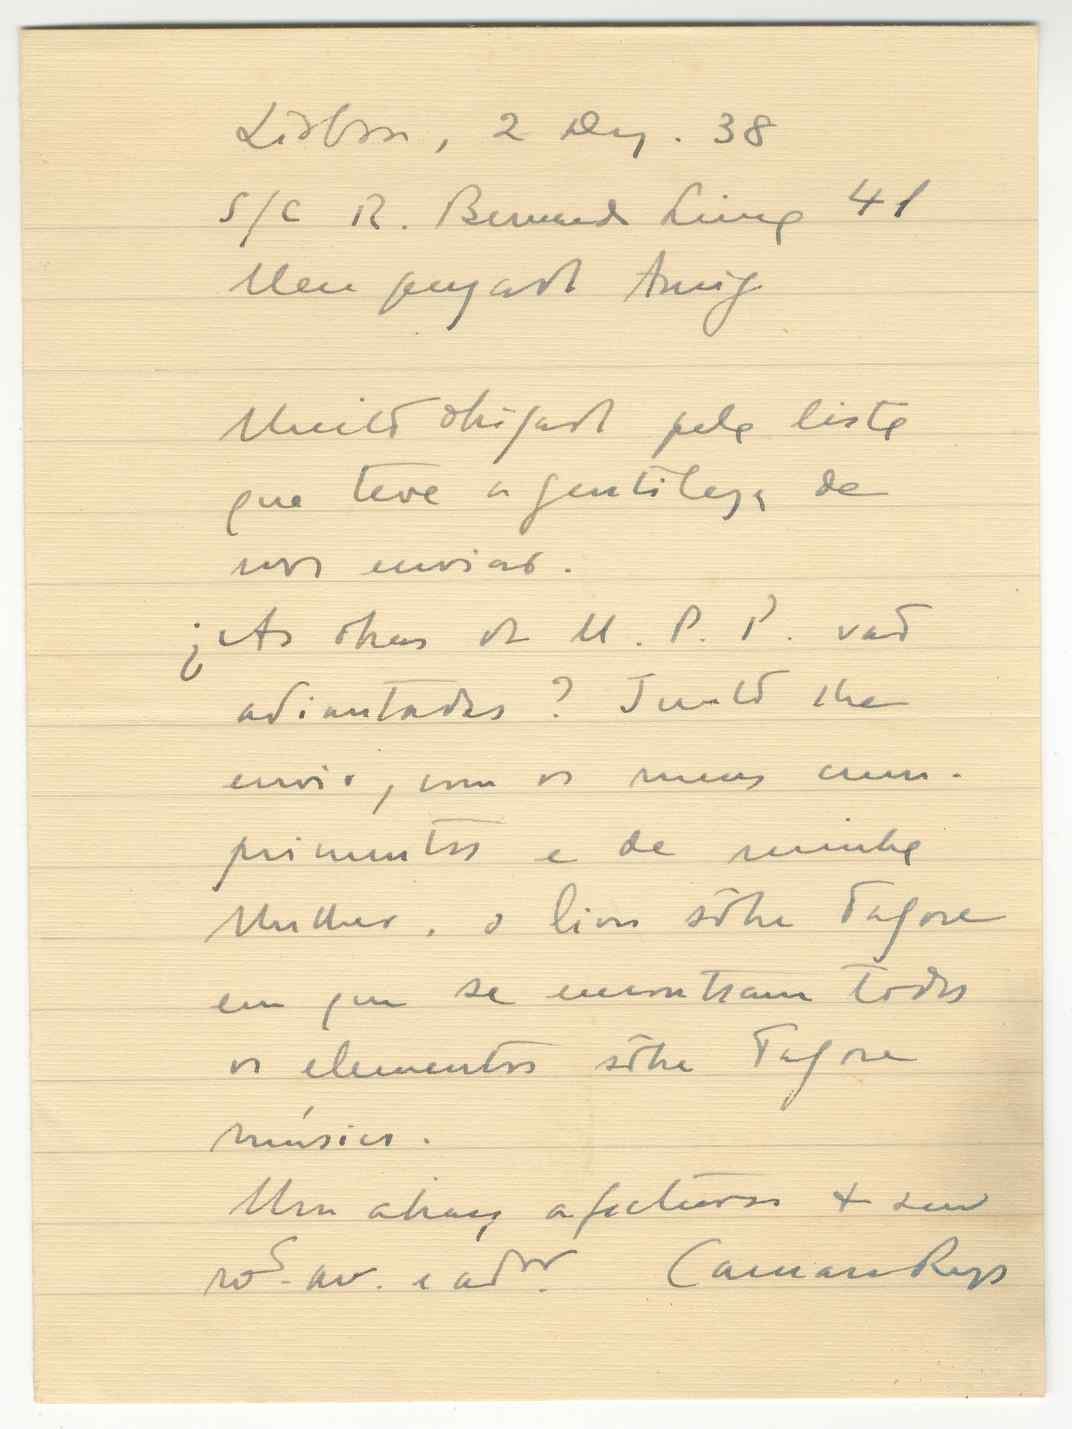 Lisboa, 2 Dez. 38
S/C R. Bernardo Lima 41
Meu prezado Amigo
Muito obrigado pela lista
que teve a gentileza de
nos enviar.
¿As obras do M. P. P. vão
adiantadas? Junto lhe
envio, com os meus cum-
primentos e de minha
Mulher, o livro sôbre Tagore
em que se encontram todos
os elementos sôbre Tagore
músico.
Um abraço afectuoso do seu
ador. Camara Reys